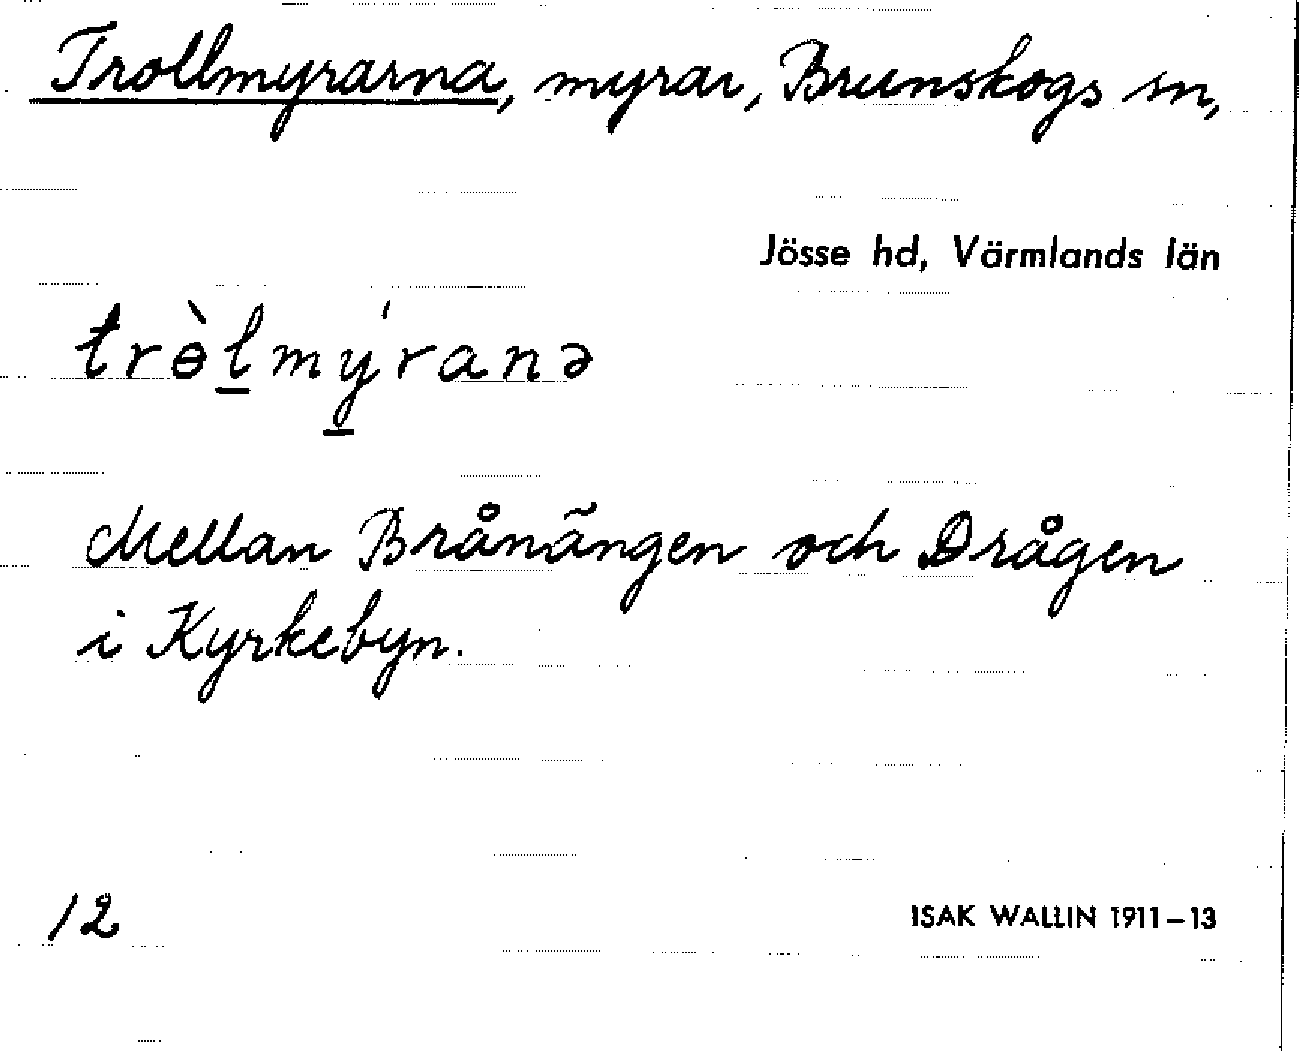 Trollmyrarna, myrar, Brunskogs sn,
Jösse hd, Värmlands län
trɵ̀l̲mý̲ranə
Mellan Brånängen och Drågen
i Kyrkebyn.
12
ISAK WALLIN 1911–13